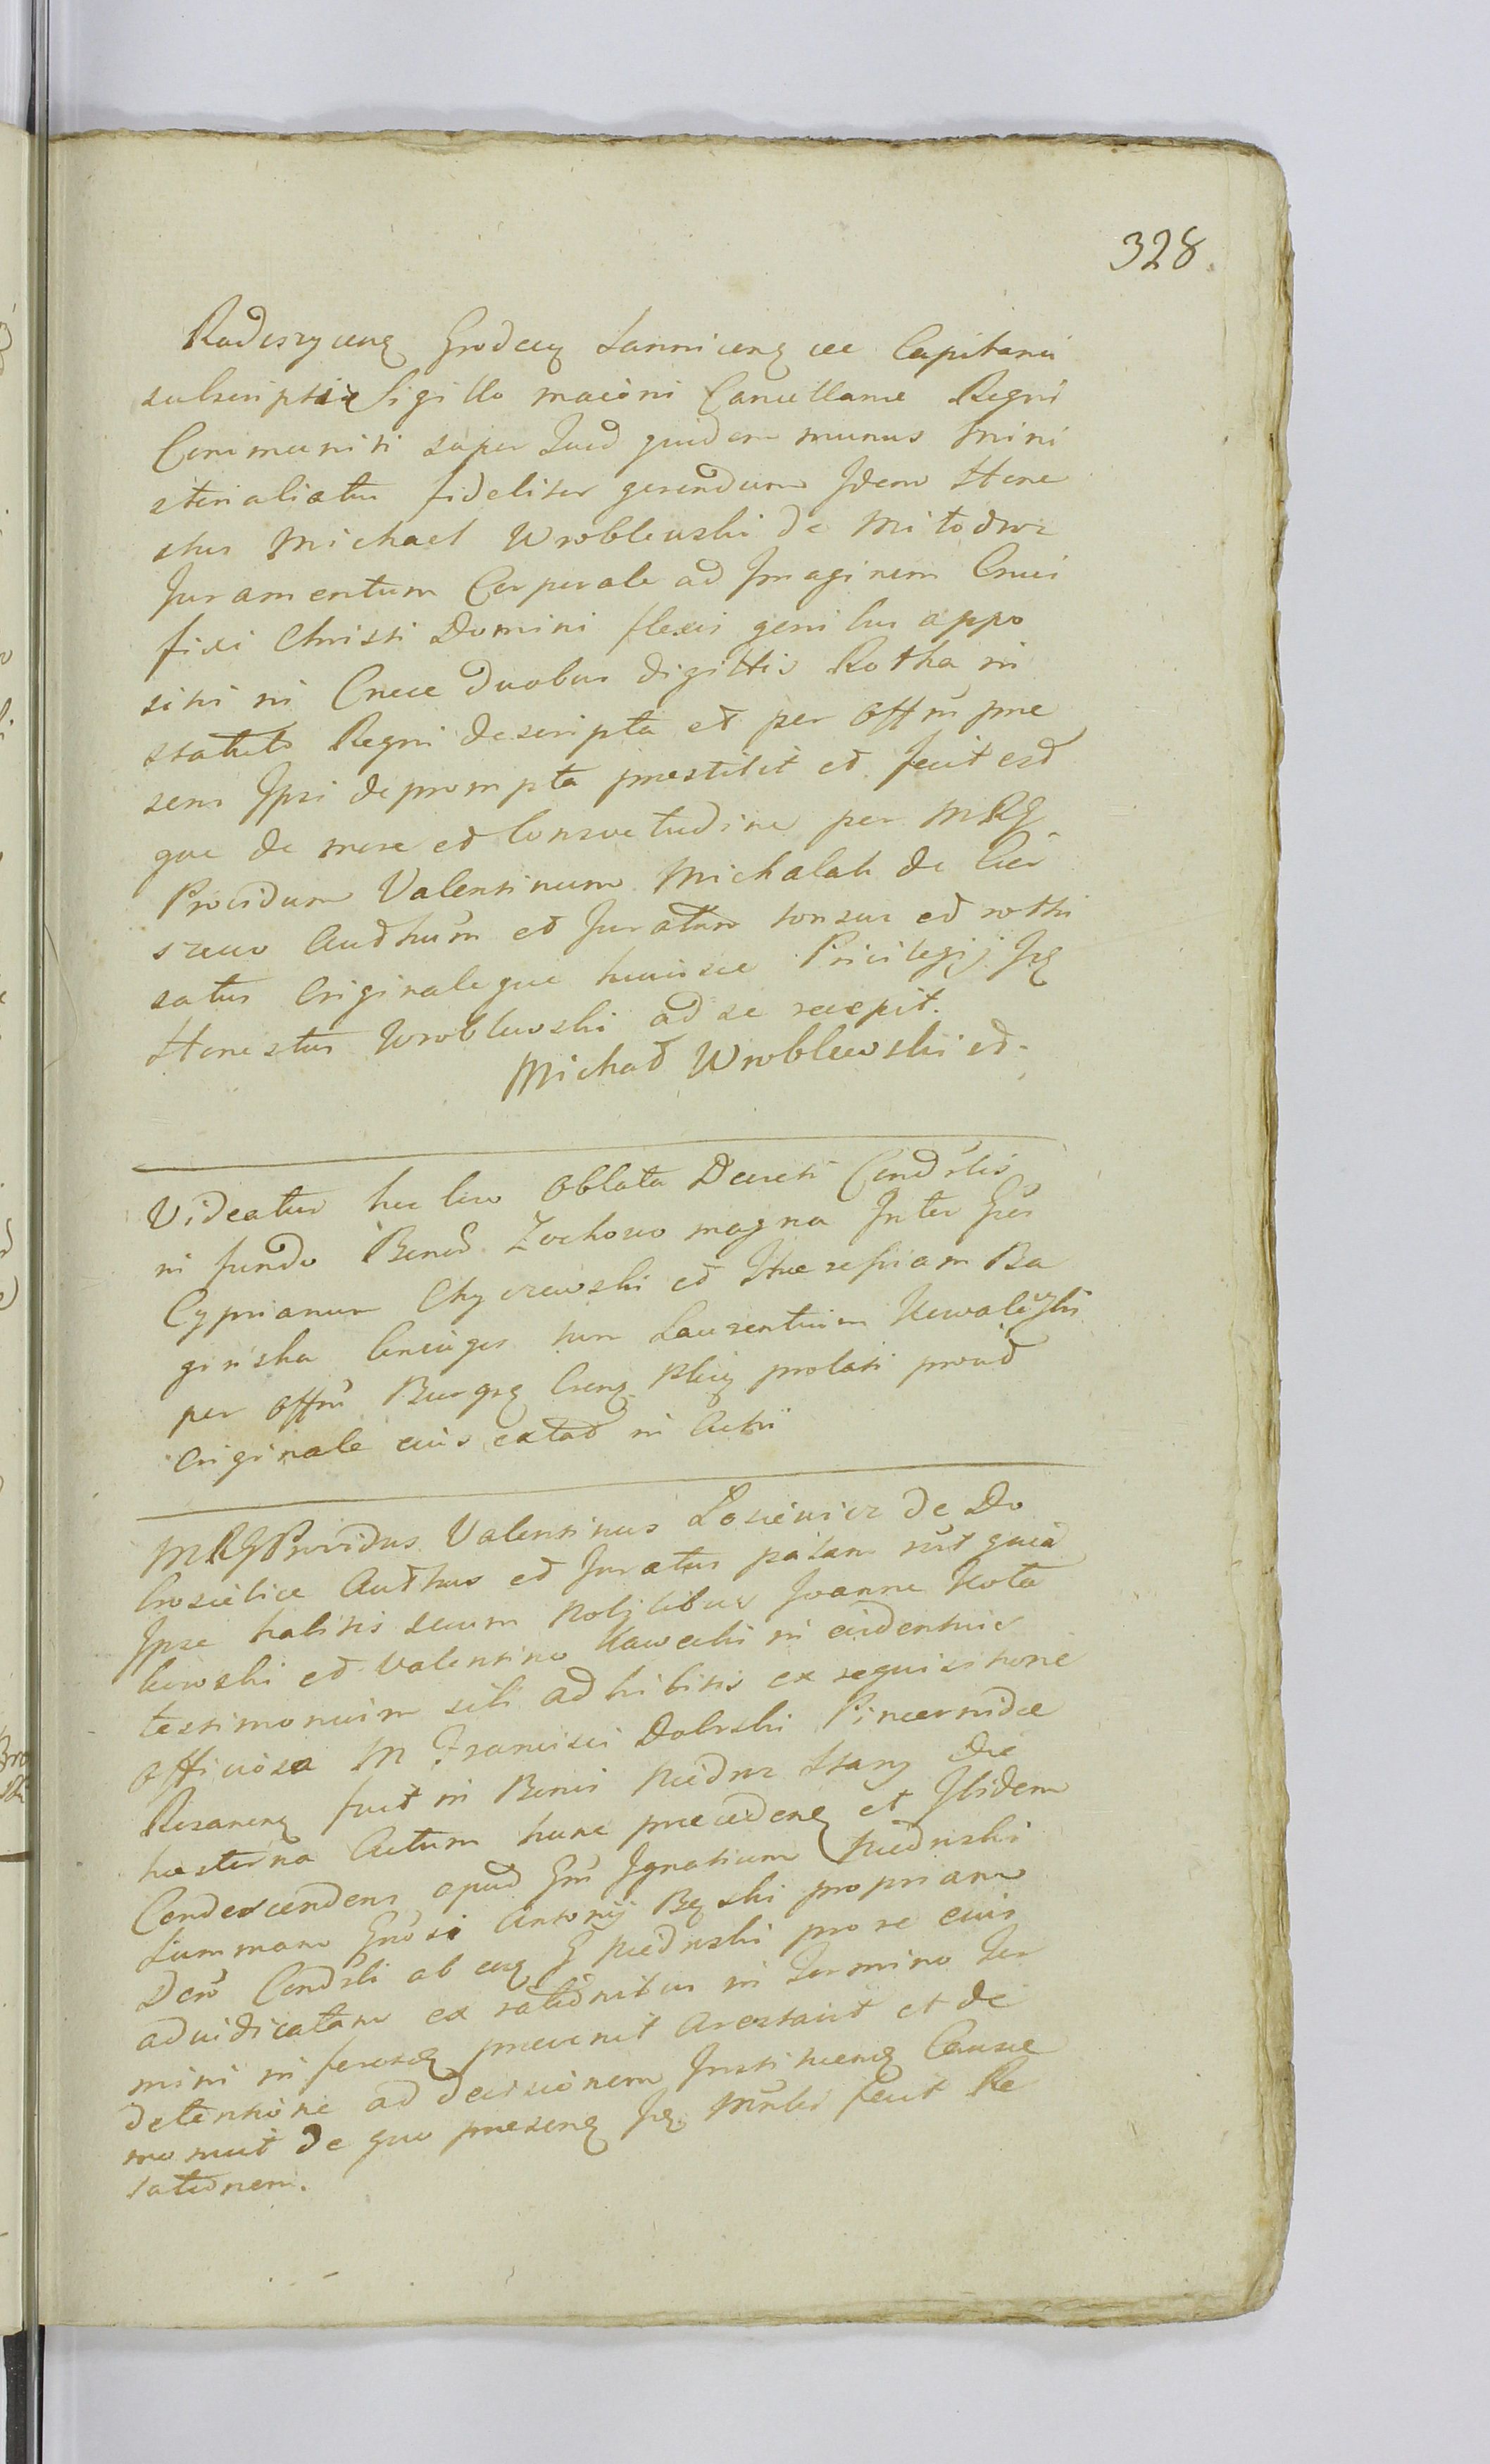 328.
Radeszycens Grodecens Lannicens ccc Capitanei
subscripti Sigillo maiori Cancellariae Regni
Communiti super quod quidem munus mini
sterialiatus fideliter gerendum Idem Hone
stus Michael Wroblewski de Miłodroz
Juramentum Corporale ad Imaginem Cruci
fixi Christi Domini flexis genibus appo
sitis in Cruce duobus digittis Rotha in
statuto Regni descripta et per Offm prae
sens Ipsi deprompta praestitit et fecit est
que de more et Consvetudine per MRG
Providum Valentinum Michalak de Cier
szewo Authum et Juratum tonsus et rothi
satus Originaleque huiusce Privilegij Iq
Honestus Wroblewski ad se recepit.
Michał Wroblewski ed.
Videatur hic loco Oblata Decreti Condrlis
in fundo Bonor. Zochowo magna Inter Gsos
Cyprianum Chyczewski et Theresiam Ba
ginska Coniuges tum Laurentium Kowalewski
per Offm Burgrg Crens Plicg prolati prout
Originale eius extat in Actis
MRG Providus Valentinus Łosiewicz de Do
brosielice Authus et Juratus palam rcct quia
Ipse habitis secum Nobilibus Joanne Kota
kowski et Valentino Kawecki in evidentius
testimonium sibi adhibitis ex requisitione
officiosa M Francisci Dobrski Pincernidae
Rosanens fuit in Bonis Niedroz Stary die
hesterna Actum hunc praecedens et Ibidem
Condescendens apud Gm Ignatium Niedrski
Summam Gnosi Antonij Bęski propriam
Decro Condrli ab eog G Niedrski pro re eius
adiudicatam ex rationibus in termino ter
mini in ferendq praevenit Arestavit et de
detentione ad decisionem Instituendq Causae
monuit de quo praesens Iq Mrlis fecit Re
lationem.